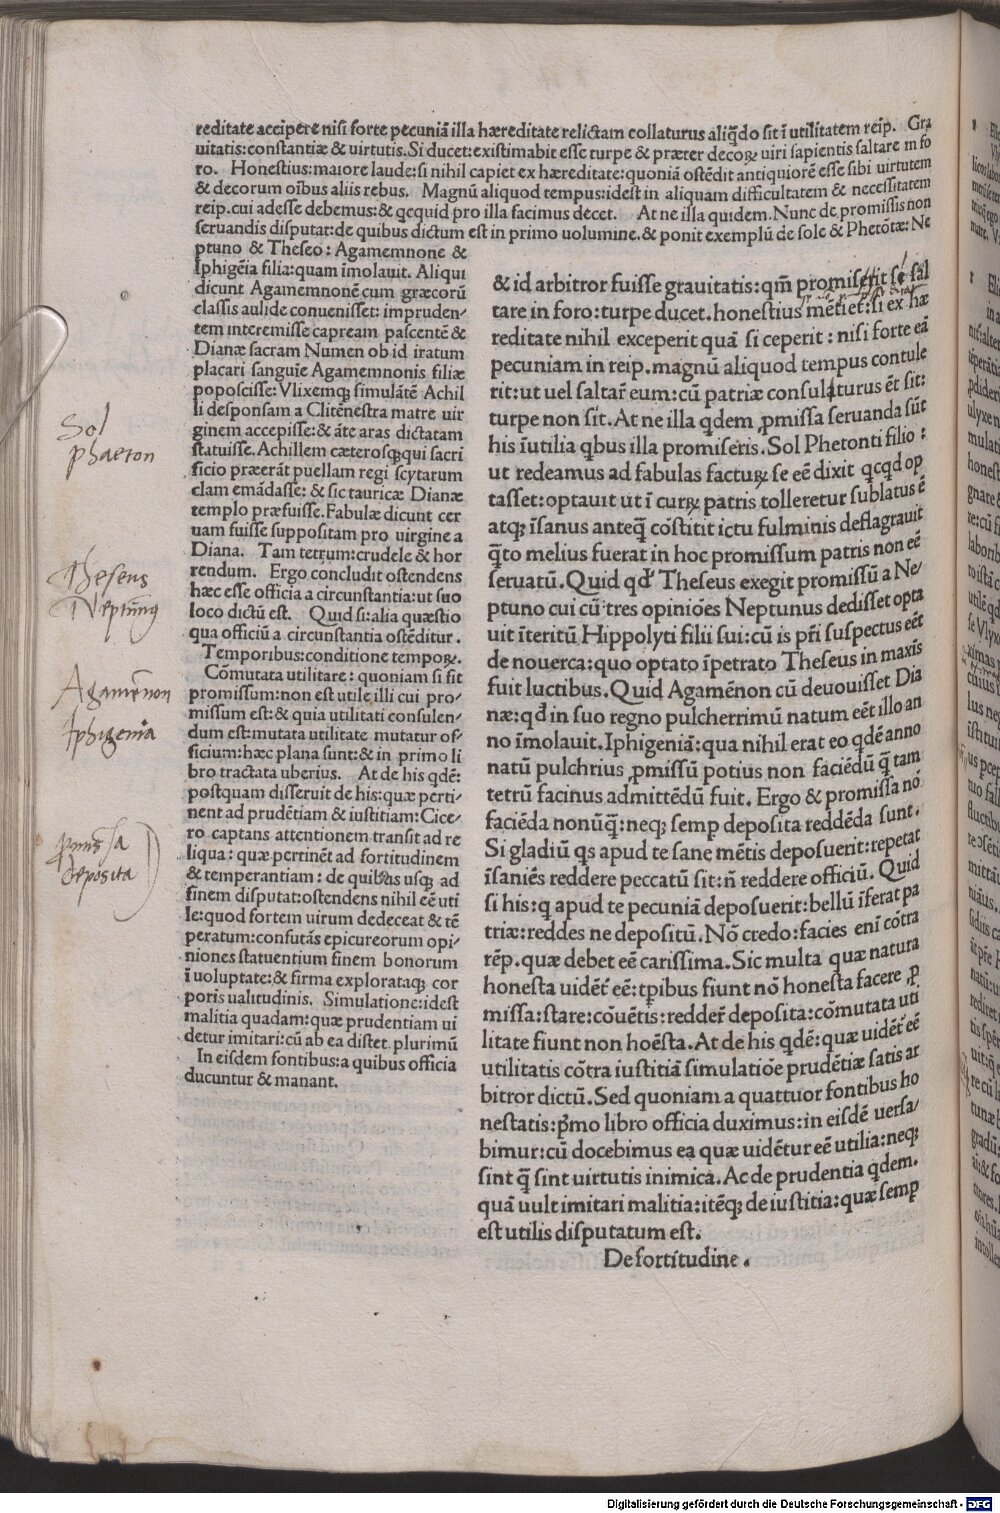 reditate accipere nisi forte pecuniā illa hæreditate relictam collaturus aliq̄do sit ī utilitatem reip. Gra
uitatis:constantiæ & uirtutis. Si ducet:existimabit esse turpe & præter decoꝝ uiri sapientis saltare in fo
ro. Honestius:maiore laude:si nihil capiet ex hæreditate:quoniā ostēdit antiquiorē esse sibi uirtutem
& decorum oībus aliis rebus. Magnū aliquod tempus:idest in aliquam difficultatem & necessitatem
reip.cui adesse debemus:& qcquid pro illa facimus decet. At ne illa quidem. Nunc de promissis non
seruandis disputat:de quibus dictum est in primo uolumine.& ponit exemplū de sole & Phetōtæ: Ne
ptuno & Theseo: Agamemnone &
Iphigēia filia:quam īmolauit. Aliqui
dicunt Agamemnonē cum græcorū
classis aulide conuenisset: impruden-
tem interemisse capream pascentē &
Dianæ sacram Numen ob id iratum
placari sanguīe Agamemnonis filiæ
poposcisse: Vlixemqꝫ simulātē Achil
li desponsam a Clitēnestra matre uir
ginem accepisse:& āte aras dictatam
statuisse. Achillem cæterosqꝫ:qui sacri
ficio præerāt puellam regi scytarum
clam emādasse: & sic tauricæ Dianæ
templo præfuisse. Fabulæ dicunt cer
uam fuisse suppositam pro uirgine a
Diana. Tam tetrum:crudele & hor
rendum. Ergo concludit ostendens
hæc esse officia a circunstantia:ut suo
loco dictū est. Quid si:alia quæstio
qua officiū a circunstantia ostēditur.
Temporibus:conditione tempoꝝ.
Cōmutata utilitare: quoniam si sit
promissum:non est utile illi cui pro-
missum est:& quia utilitati consulen-
dum est:mutata utilitate mutatur of-
ficium:hæc plana sunt:& in primo li
bro tractata uberius. At de his qdē:
postquam disseruit de his:quæ perti-
nent ad prudētiam & iustitiam:Cice-
ro captans attentionem transit ad re
liqua: quæ pertinēt ad fortitudinem
& temperantiam: de quibus usqꝫ ad
finem disputat:ostendens nihil eē uti
le:quod fortem uirum dedeceat & tē
peratum:confutās epicureorum opi-
niones statuentium finem bonorum
ī uoluptate:& firma explorataqꝫ cor
poris ualitudinis. Simulatione:idest
malitia quadam:quæ prudentiam ui
detur imitari:cū ab ea distet plurimū
In eisdem fontibus:a quibus officia
ducuntur & manant.
& id arbitror fuisse grauitatis:qm̄ promiserit se sal
tare in foro:turpe ducet.honestius mētiet:si ex hæ
reditate nihil exceperit quā si ceperit: nisi forte eā
pecuniam in reip.magnū aliquod tempus contule
rit:ut uel saltar̄ eum:cū patriæ consulaturus ēt sit:
turpe non sit. At ne illa qdem ꝓmissa seruanda sūt
his īutilia qbus illa promiseris. Sol Phetonti filio:
ut redeamus ad fabulas factuꝝ se eē dixit qcqd op
tasset:optauit ut ī curꝝ patris tolleretur sublatus ē
atqꝫ īsanus anteq̄ cōstitit ictu fulminis deflagrauit
q̄to melius fuerat in hoc promissum patris non eē
seruatū. Quid qd' Theseus exegit promissū a Ne-
ptuno cui cū tres opiniōes Neptunus dedisset opta
uit īteritū Hippolyti filii sui:cū is pr̄i suspectus eēt
de nouerca:quo optato īpetrato Theseus in maxīs
fuit luctibus. Quid Agamēnon cū deuouisset Dia
næ:qd̄ in suo regno pulcherrimū natum eēt illo an
no īmolauit. Iphigeniā:qua nihil erat eo qdē anno
natū pulchrius ꝓmissū potius non faciēdū q̄ tam
tetrū facinus admittēdū fuit. Ergo & promissa nō
faciēda nonūq̄:neqꝫ semp deposita reddēda sunt.
Si gladiū qs apud te sane mētis deposuerit:repetat
īsaniēs reddere peccatū sit:n̄ reddere officiū. Quid
si his:q apud te pecuniā deposuerit:bellū īferat pa
triæ:reddes ne depositū. Nō credo:facies enī cōtra
rēp.quæ debet eē carissima. Sic multa quæ natura
honesta uidēt eē:tp̄ibus fiunt nō honesta facere ꝓ
missa:stare:cōuētis:redder̄ deposita:cōmutata uti
litate fiunt non hoēsta. At de his qdē:quæ uidēt eē
utilitatis cōtra iustitiā simulatiōe prudētiæ satis ar
bitror dictū. Sed quoniam a quattuor fontibus ho
nestatis:p̄mo libro officia duximus:in eisdē uersa-
bimur:cū docebimus ea quæ uidētur eē utilia:neqꝫ
sint q̄ sint uirtutis inimica. Ac de prudentia qdem.
quā uult imitari malitia:itēqꝫ de iustitia:quæ semp
est utilis disputatum est.
De fortitudine.
Sol
phaeton
Theseus
Neptunus
Agamēnon
Iphigenia
promissa
deposita
Digitalisierung gefördert durch die Deutsche Forschungsgemeinschaft - DFG